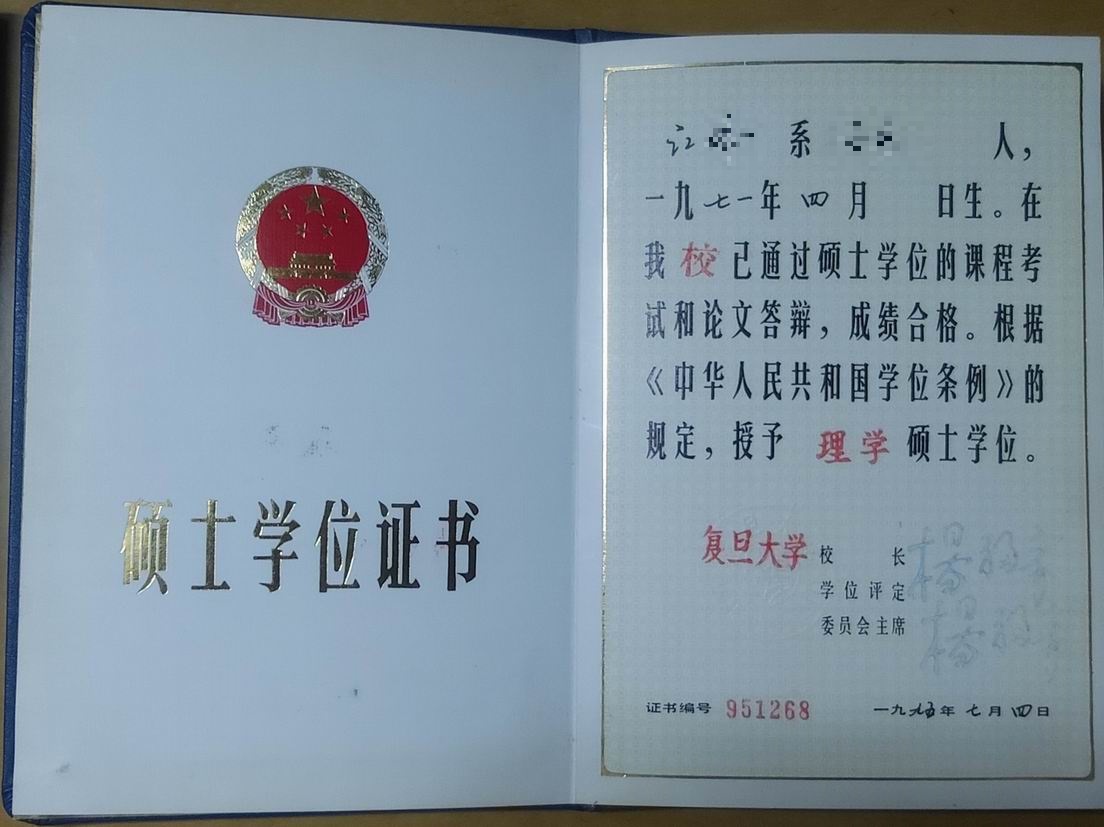 硕士学位证书
江 系 人，
一九七一年四月 日生。在
我校已通过硕士学位的课程考
试和论文答辩，成绩合格。根据
《中华人民共和国学位条例》的
规定，授予 理学 硕士学位。
复旦大学 校长
学位评定
委员会主席
证书编号 951268 一九九五年七月四日